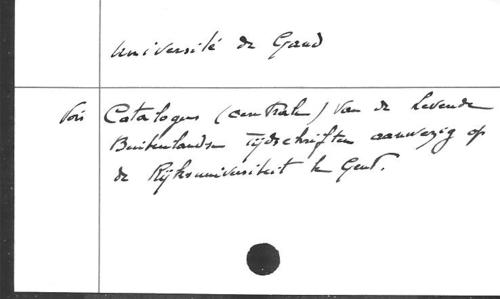 Université de Gand
Vois Catalogus (centrale) van de levende
Buitenlandse Tijdschriften aanwezig op
de Rijksuniversiteit te Gent.